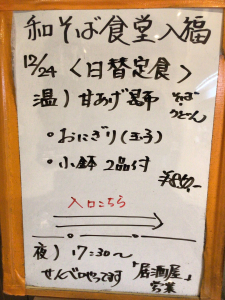 和そば食堂入福
12/24 〈日替定食〉
温）甘あげ昆布 そば うどん
・おにぎり(玉子)
・小鉢 2品付
入口こちら
夜）17:30〜
せんべろやってます 「居酒屋」営業